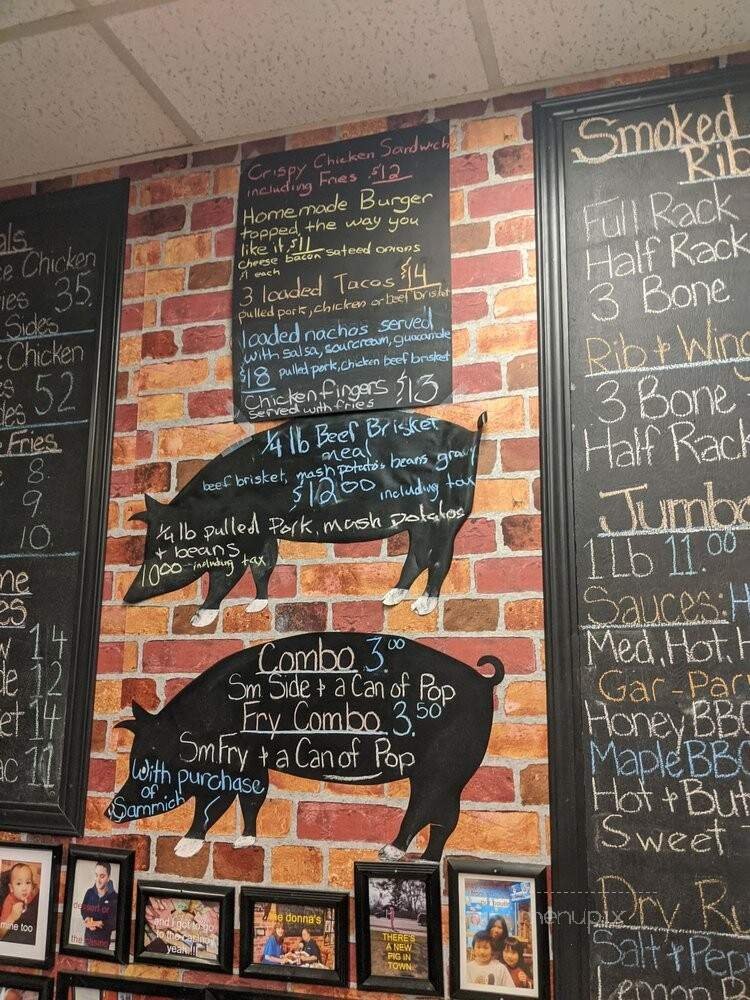 als
e Chicken
ies 35.
Sides
e Chicken
es 52
des
e Fries
8.
9.
10.
me
es
w 14
de 12
et 14
ac 11
Crispy Chicken Sandwich
including Fries $12
Homemade Burger
topped the way you
like it $11
cheese bacon sateed onions
each
3 loaded Tacos $14
pulled pork, chicken or beef brisket
loaded nachos served
with salsa, sourcream, guacamole
$18 pulled pork, chicken beef brisket
Chicken fingers $13
served with fries
1/4 lb Beef Brisket
meal
beef brisket, mash potatos beans gravy
$12.00 including tax
1/4 lb pulled Pork, mash potatos
+ beans
10.00 including tax
Combo 3.00
Sm Side + a Can of Pop
Fry Combo 3.50
Sm Fry + a Can of Pop
With purchase
of
Sammich
Smoked
Rib
Full Rack
Half Rack
3 Bone
Rib + Wing
3 Bone
Half Rack
Jumbo
1Lb 11.00
Sauces: H
Med, Hot, H
Gar-Par
Honey BBQ
Maple BBQ
Hot + Butt
Sweet
Dry Ru
Salt + Pep
Lemon P
mine too
dessert or
the
and I got to go
to the casino
yeah!!!
the donna's
THERE'S
A NEW
PIG IN
TOWN
menupix